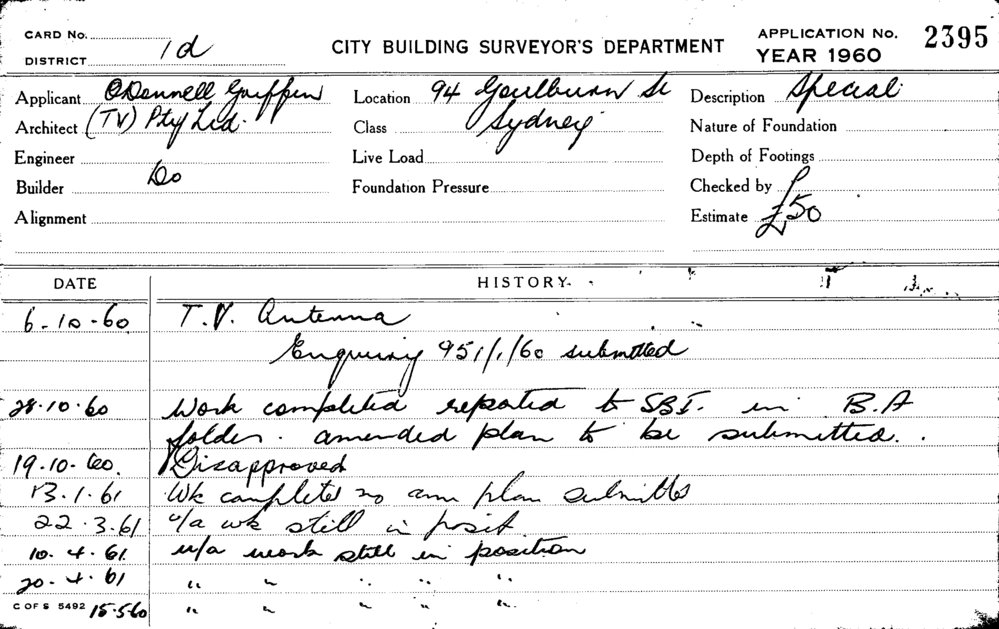 CARD No.
DISTRICT 1d
CITY BUILDING SURVEYOR'S DEPARTMENT
APPLICATION No. 2395
YEAR 1960
Applicant O'Donnell Griffin
Location 94 Goulburn St
Description Special
Architect (TV) Pty Ltd.
Class Sydney
Nature of Foundation
Engineer
Live Load
Depth of Footings
Builder Do
Foundation Pressure
Checked by
Alignment
Estimate £50
DATE HISTORY
6-10-60 T.V. Antenna
Enquiry 951/1/60 submitted
28-10-60 Work completed reported to SBI. in B.A
folder. amended plan to be submitted.
19-10-60. Disapproved
13.1.61 Wk completed no am plan submitted
22.3.61 u/a wk still in posit
10.4.61. u/a work still in position
20.4.61 " " " " "
C OF S 5492 15.5.60 " " " " "